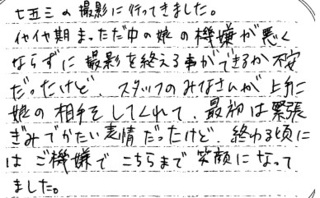 七五三の撮影に行ってきました。
イヤイヤ期まっただ中の娘の機嫌が悪く
ならずに撮影を終える事ができるか不安
だったけど、スタッフのみなさんが上手に
娘の相手をしてくれて、最初は緊張
ぎみでかたい表情だったけど、終わる頃に
はご機嫌でこちらまで笑顔になって
ました。